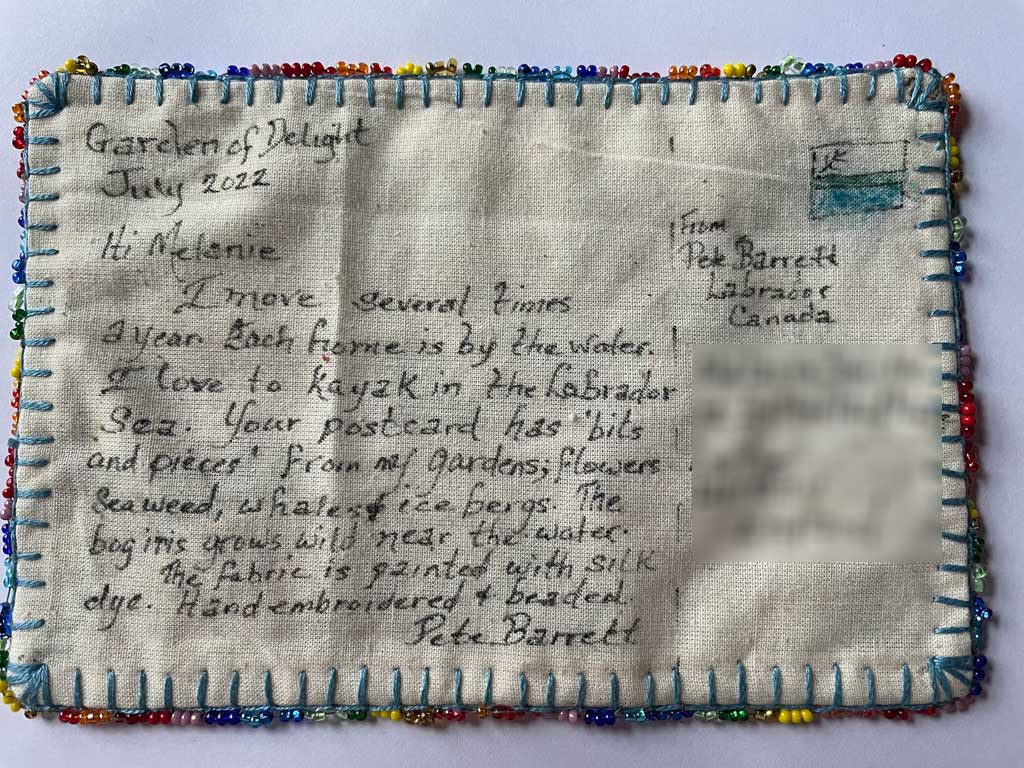 Garden of Delight
July 2022
Hi Melanie
I move several times
a year. Each home is by the water.
I love to kayak in the Labrador
Sea. Your postcard has "bits
and pieces" from my gardens; flowers
seaweed, whales & ice bergs. The
bog iris grows wild near the water.
The fabric is painted with silk
dye. Hand embroidered & beaded.
Pete Barrett
From
Pete Barrett
Labrador
Canada